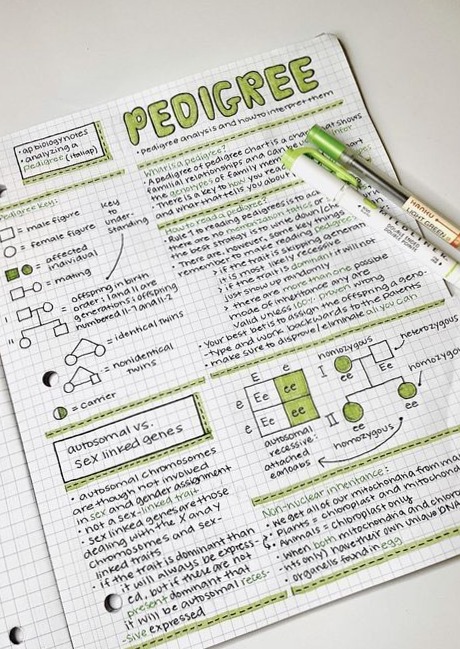 PEDIGREE
• pedigree analysis and how to interpret them
• ap biology notes
• analyzing a
pedigree
Pedigree key:
= male figure
= female figure
= affected
individual
= mating
I
II
= offspring in birth
order; I and II are
generations; offspring
numbered II-1 and II-2
= identical twins
= nonidentical
twins
= carrier
key
to
under-
standing
What is a pedigree?
• A pedigree of pedigree chart is a chart that shows
familial relationships and can
the genotypes of family
there is a key to how you
and what that tells you about
How to read a pedigree?
• Rule 1 to reading pedigrees is to
there are no memorization
the best strategy is to write down
There are, however, some key things
remember to make reading pedigrees
? if the trait is skipping generation
it is most likely recessive
? if the trait is dominant it will not
just show up randomly
? there are more than one possible
mode of inheritance any are
valid unless 100% proven wrong
• Your best bet is to assign the offspring a geno-
type and work backwards to the parents
• make sure to disprove/eliminate all you can
autosomal vs.
sex linked genes
• autosomal chromosomes
are though not involved
in sex and gender assignment
• not a sex-linked trait
• sex linked genes are those
dealing with the X and Y
chromosomes and sex-
linked traits
• if the trait is dominant than
it will always be express-
ed, but if these are not
present dominant that
it will be autosomal reces-
sive expressed
E e
e Ee ee
e Ee ee
autosomal
recessive:
attached
earlobes
homozygous
heterozygous
I
ee
Ee
homozygous
II
ee
ee
homozygous
Non-nuclear inheritance:
• We get all of our mitochondria from
• Plants = chloroplast and
• Animals = chloroplast only
• When both mitochondria and
nts only) have their own unique DNA
organelles found in egg
LIGHT GREEN